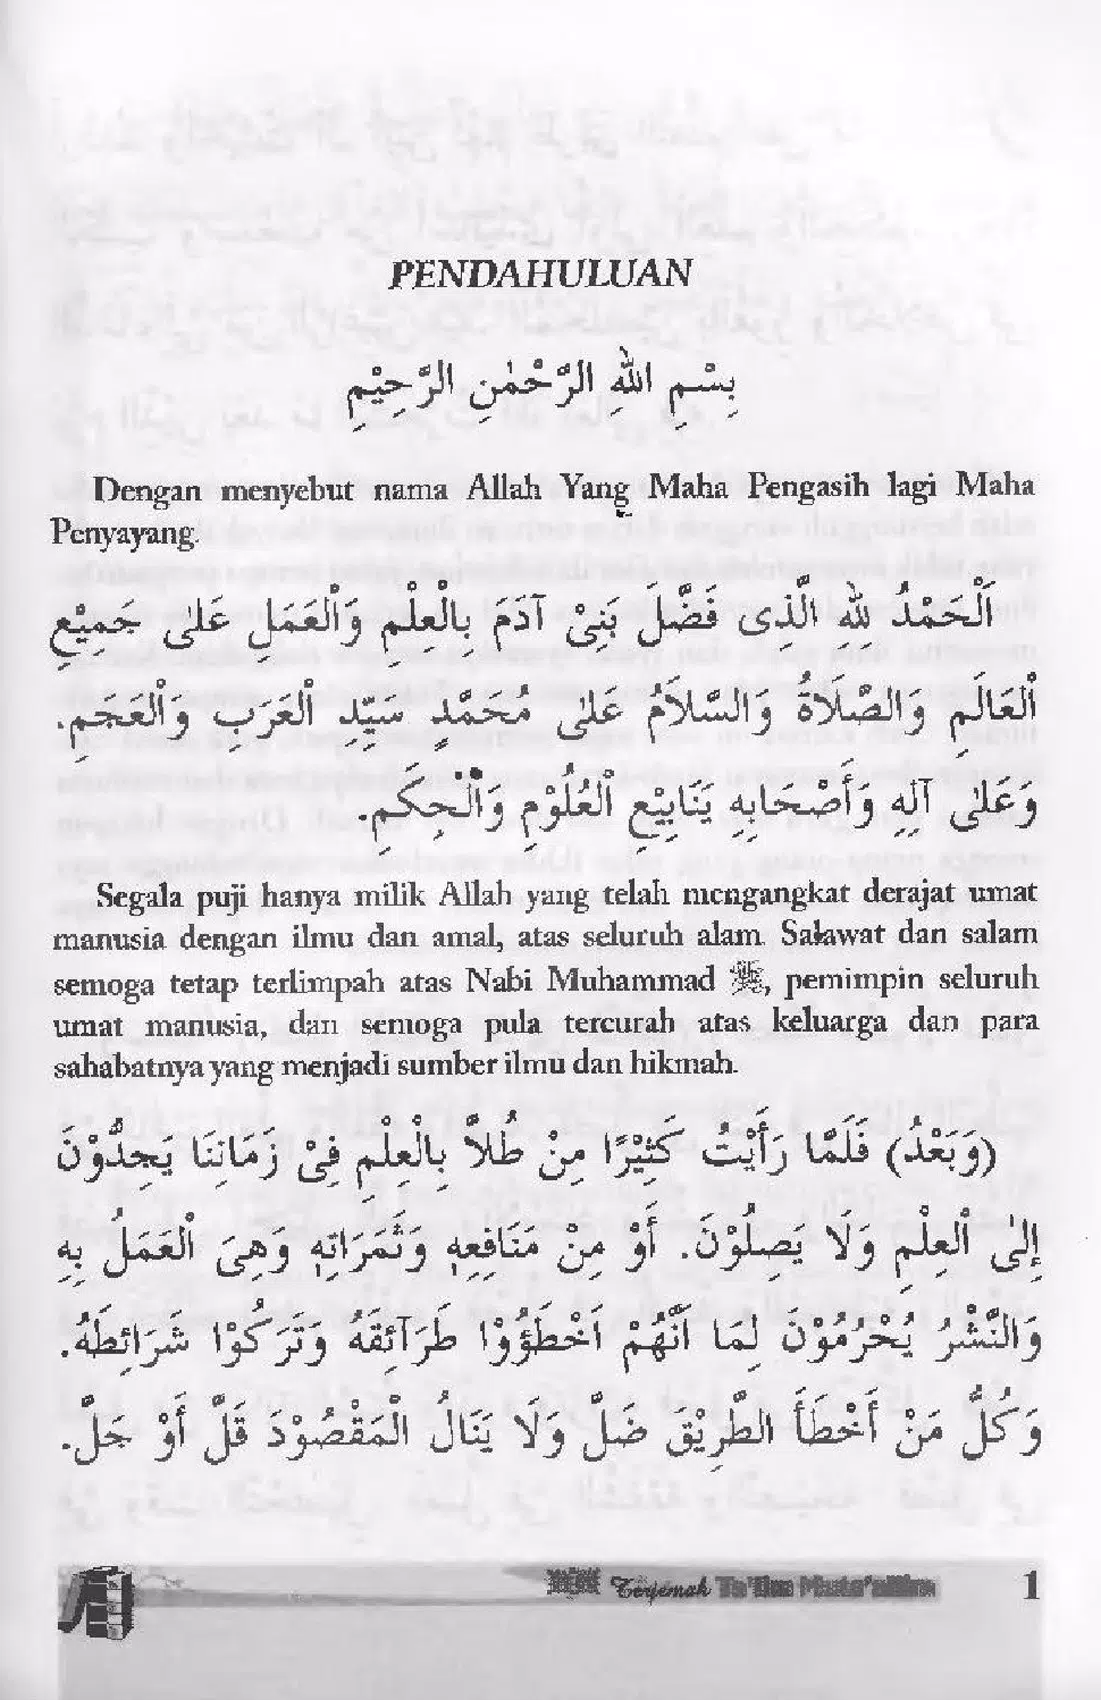 PENDAHULUAN
بِسْمِ اللهِ الرَّحْمٰنِ الرَّحِيْمِ
Dengan menyebut nama Allah Yang Maha Pengasih lagi Maha
Penyayang.
اَلْحَمْدُ لِلهِ الَّذِى فَضَّلَ بَنِىْ آدَمَ بِالْعِلْمِ وَالْعَمَلِ عَلىٰ جَمِيْعِ
الْعَالَمِ وَالصَّلَاةُ وَالسَّلَامُ عَلىٰ مُحَمَّدٍ سَيِّدِ الْعَرَبِ وَالْعَجَمِ.
وَعَلىٰ آلِهِ وَأَصْحَابِهِ يَنَابِيْعِ الْعُلُوْمِ وَالْحِكَمِ.
Segala puji hanya milik Allah yang telah mengangkat derajat umat
manusia dengan ilmu dan amal, atas seluruh alam. Salawat dan salam
semoga tetap terlimpah atas Nabi Muhammad ﷺ, pemimpin seluruh
umat manusia, dan semoga pula tercurah atas keluarga dan para
sahabatnya yang menjadi sumber ilmu dan hikmah.
(وَبَعْدُ) فَلَمَّا رَأَيْتُ كَثِيْرًا مِنْ طُلاَّ بِالْعِلْمِ فِىْ زَمَانِنَا يَجِدُّوْنَ
إِلىٰ الْعِلْمِ وَلَا يَصِلُوْنَ. أَوْ مِنْ مَنَافِعِهٖ وَثَمَرَاتِهٖ وَهِىَ الْعَمَلُ بِهِ
وَالنَّشْرُ يُحْرُمُوْنَ لِمَا اَنَّهُمْ اَخْطَؤُوْا طَرَآئِقَهُ وَتَرَكُوْا شَرَائِطَهُ.
وَكُلُّ مَنْ أَخْطَأَ الطَّرِيْقَ ضَلَّ وَلَا يَنَالُ الْمَقْصُوْدَ قَلَّ أَوْ جَلَّ.
Terjemah Ta'lim Muta'allim 1